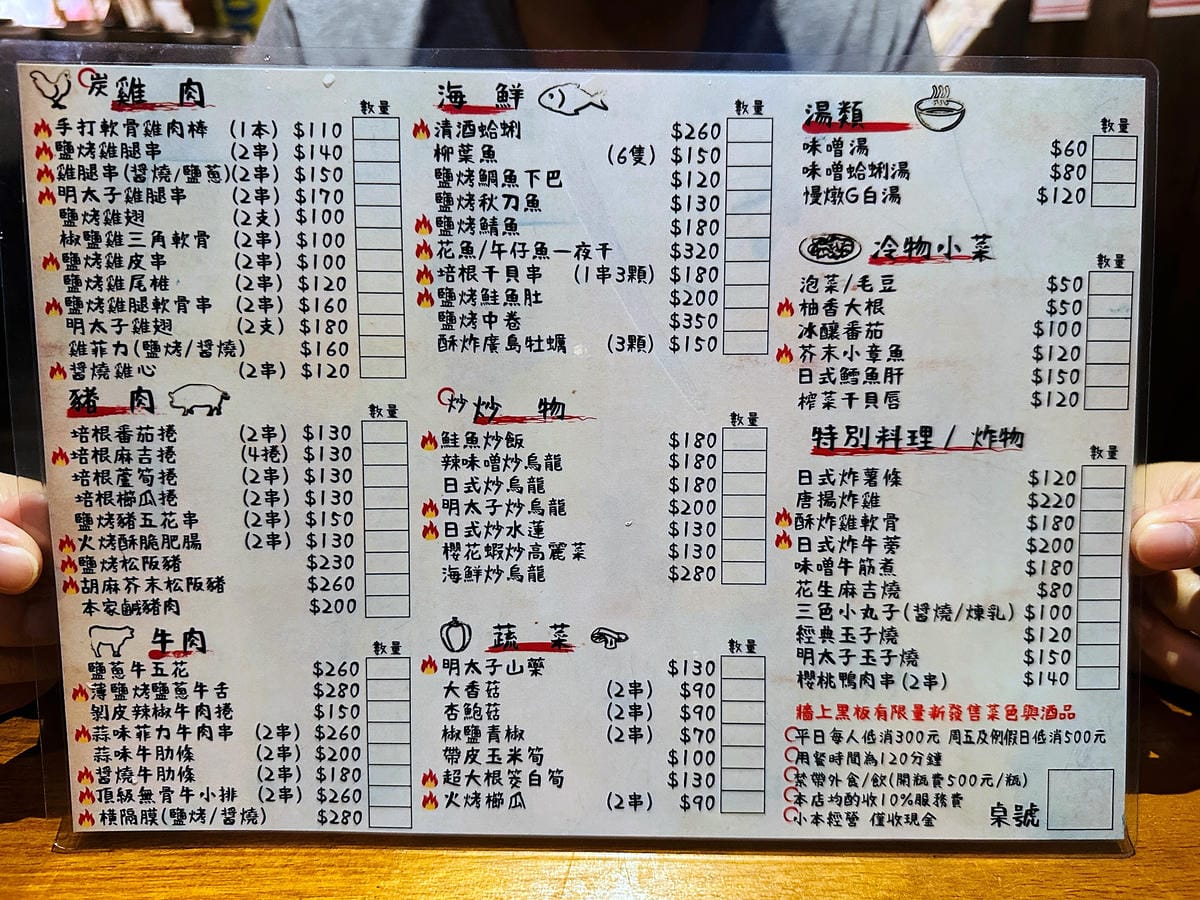 炭 雞肉 數量
手打軟骨雞肉棒 (1本) $110
鹽烤雞腿串 (2串) $140
雞腿串(醬燒/鹽蔥)(2串) $150
明太子雞腿串 (2串) $170
鹽烤雞翅 (2支) $100
椒鹽雞三角軟骨 (2串) $100
鹽烤雞皮串 (2串) $100
鹽烤雞尾椎 (2串) $120
鹽烤雞腿軟骨串 (2串) $160
明太子雞翅 (2支) $180
雞菲力(鹽烤/醬燒) $160
醬燒雞心 (2串) $120
豬肉 數量
培根番茄捲 (2串) $130
培根麻吉捲 (4捲) $130
培根蘆筍捲 (2串) $130
培根櫛瓜捲 (2串) $130
鹽烤豬五花串 (2串) $150
火烤酥脆肥腸 (2串) $130
鹽烤松阪豬 $230
胡麻芥末松阪豬 $260
本家鹹豬肉 $200
牛肉 數量
鹽蔥牛五花 $260
薄鹽烤鹽蔥牛舌 $280
剝皮辣椒牛肉捲 $150
蒜味菲力牛肉串 (2串) $260
蒜味牛肋條 (2串) $200
醬燒牛肋條 (2串) $180
頂級無骨牛小排 (2串) $260
橫隔膜(鹽烤/醬燒) $280
海鮮 數量
清酒蛤蜊 $260
柳葉魚 (6隻) $150
鹽烤鯛魚下巴 $120
鹽烤秋刀魚 $130
鹽烤鯖魚 $180
花魚/午仔魚一夜干 $320
培根干貝串 (1串3顆) $180
鹽烤鮭魚肚 $200
鹽烤中卷 $350
酥炸廣島牡蠣 (3顆) $150
炒 炒物 數量
鮭魚炒飯 $180
辣味噌炒烏龍 $180
日式炒烏龍 $180
明太子炒烏龍 $200
日式炒水蓮 $130
櫻花蝦炒高麗菜 $130
海鮮炒烏龍 $280
蔬菜 數量
明太子山藥 $130
大香菇 (2串) $90
杏鮑菇 (2串) $90
椒鹽青椒 (2串) $70
帶皮玉米筍 $100
超大根筊白筍 $130
火烤櫛瓜 (2串) $90
湯類 數量
味噌湯 $60
味噌蛤蜊湯 $80
慢燉G白湯 $120
冷物小菜 數量
泡菜/毛豆 $50
柚香大根 $50
冰釀番茄 $100
芥末小章魚 $120
日式鱈魚肝 $150
榨菜干貝唇 $120
特別料理/炸物 數量
日式炸薯條 $120
唐揚炸雞 $220
酥炸雞軟骨 $180
日式炸牛蒡 $200
味噌牛筋煮 $180
花生麻吉燒 $80
三色小丸子(醬燒/煉乳) $100
經典玉子燒 $120
明太子玉子燒 $150
櫻桃鴨肉串(2串) $140
牆上黑板有限量新發售菜色與酒品
平日每人低消300元 周五及例假日低消500元
用餐時間為120分鐘
禁帶外食/飲(開瓶費500元/瓶)
本店均酌收10%服務費
小本經營 僅收現金
桌號